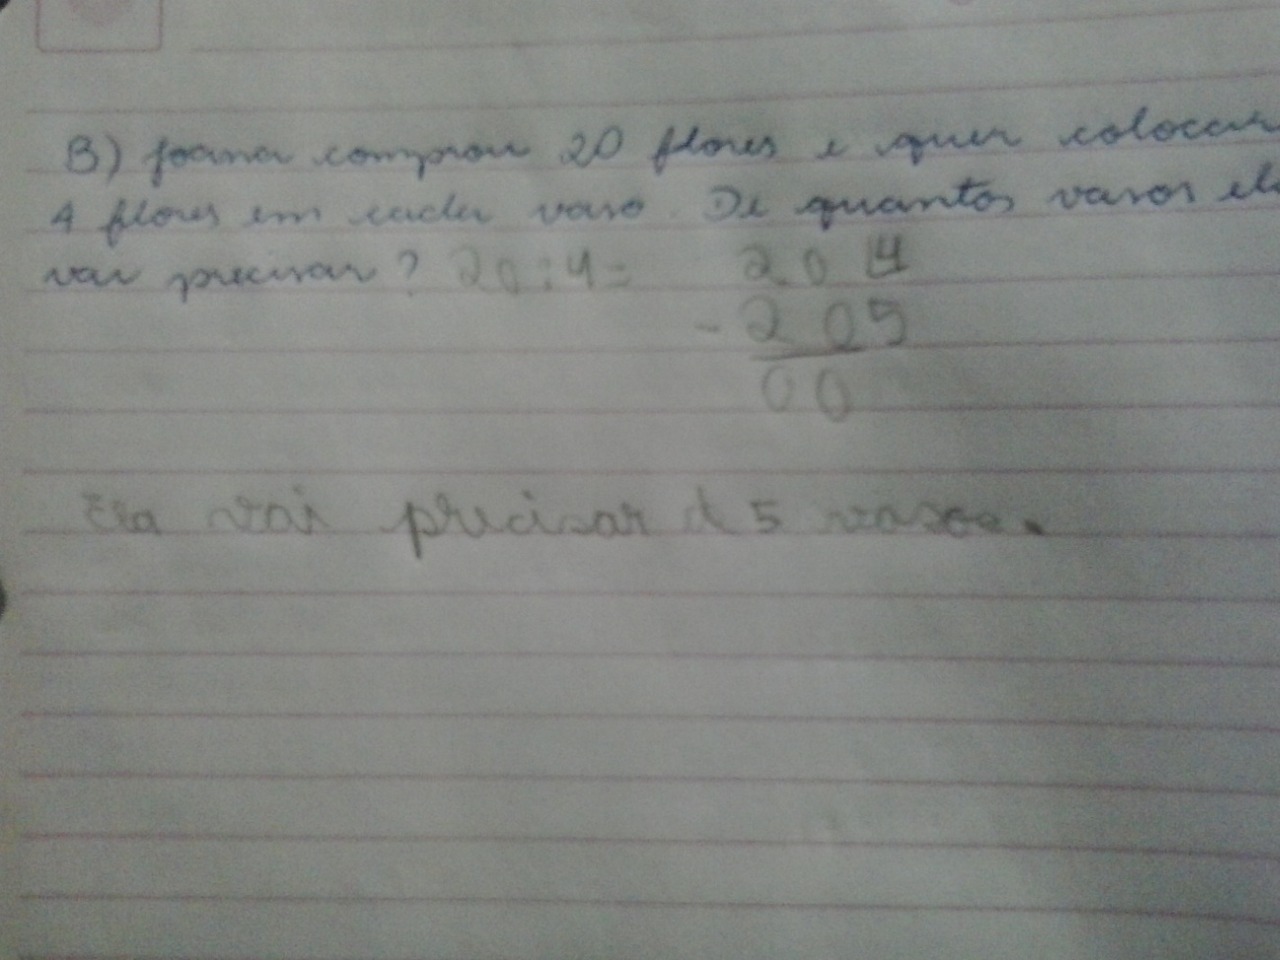 B) Joana comprou 20 flores e quer colocar
4 flores em cada vaso. De quantos vasos ela
vai precisar? 20:4= 20 4
- 20 5
00
Ela vai precisar d 5 vasos.